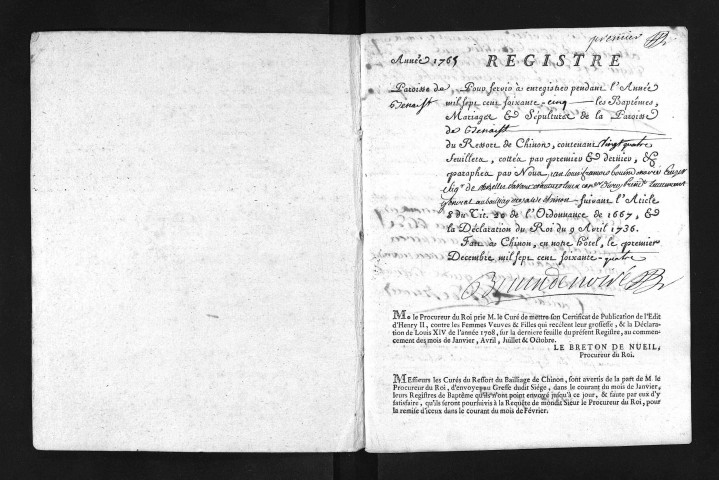 premier
Année 1765 REGISTRE
Paroisse de Benaist
Pour servir à enregistrer pendant l'Année
mil sept cent soixante-cinq les Baptêmes,
Mariages & Sépultures de la Paroisse
de Benaist
du Ressort de Chinon, contenant vingt quatre
feuillets, cottés par premier & dernier, &
paraphés par Nous,
suivant l'Article
8 du Tit. 20 de l'Ordonnance de 1667, &
la Déclaration du Roi du 9 Avril 1736.
Fait à Chinon, en notre hôtel, le premier
Decembre mil sept cent soixante-quatre
M. le Procureur du Roi prie M. le Curé de mettre son Certificat de Publication de l'Edit
d'Henry II, contre les Femmes Veuves & Filles qui recélent leur grossesse, & la Déclara-
tion de Louis XIV de l'année 1708, sur la derniere feuille du présent Registre, au commen-
cement des mois de Janvier, Avril, Juillet & Octobre.
LE BRETON DE NUEIL,
Procureur du Roi.
MEssieurs les Curés du Ressort du Bailliage de Chinon, sont avertis de la part de M. le
Procureur du Roi, d'envoyer au Greffe dudit Siége, dans le courant du mois de Janvier,
leurs Registres de Baptême qu'ils n'ont point envoyé jusqu'à ce jour, & faute par eux d'y
satisfaire, qu'ils seront poursuivis à la Requête de mondit Sieur le Procureur du Roi, pour
la remise d'iceux dans le courant du mois de Février.